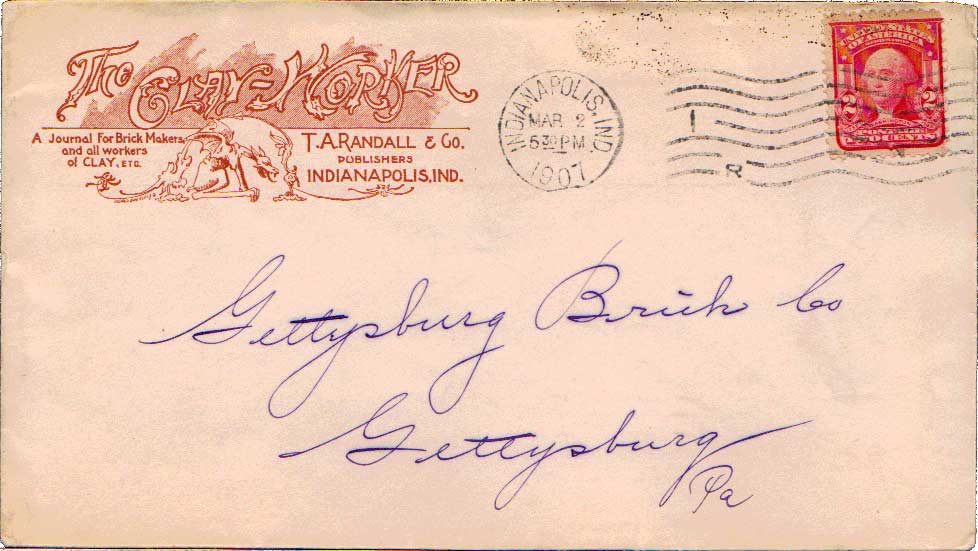 The Clay-Worker
A Journal For Brick Makers,
and all workers
of CLAY, ETC.
T.A. RANDALL & Co.
PUBLISHERS
INDIANAPOLIS, IND.
INDIANAPOLIS, IND.
MAR 2
530 PM
1907
1
UNITED STATES
OF AMERICA
2 2
POSTAGE
TWO CENTS
Gettysburg Brick Co
Gettysburg
Pa